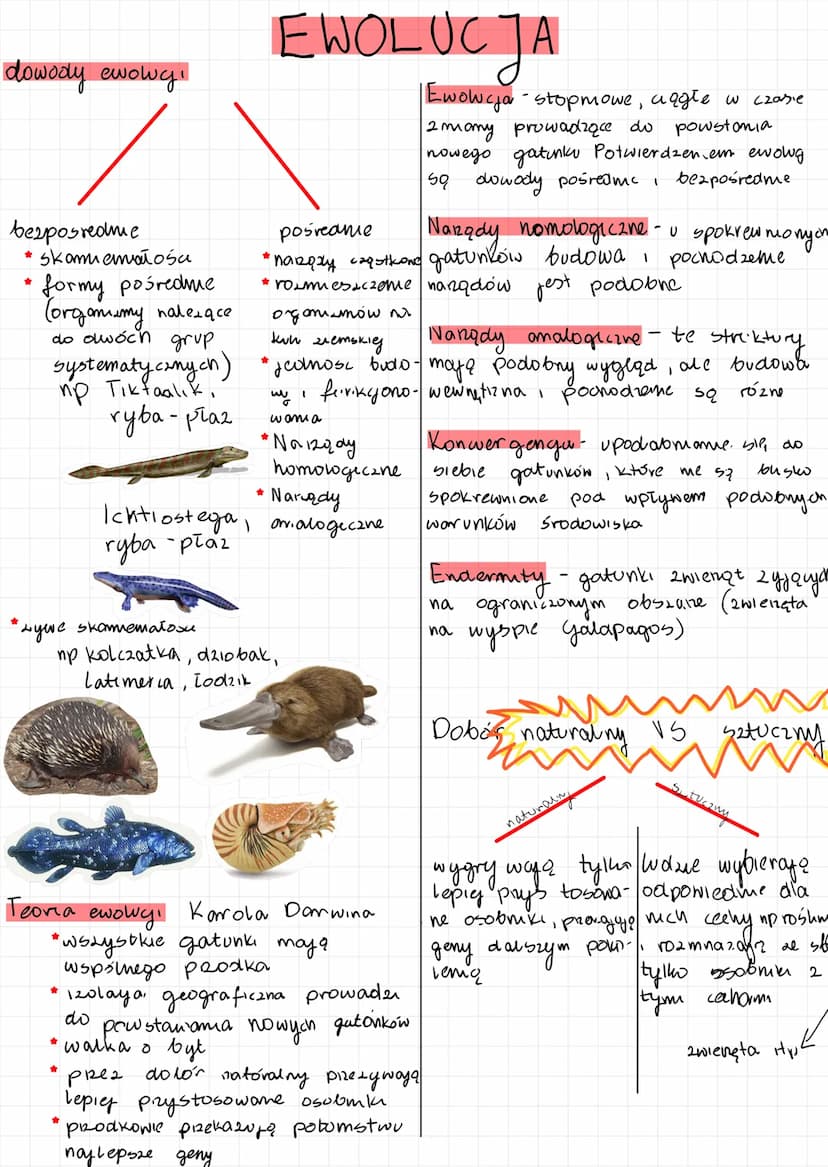 EWOLUCJA
dowody ewolucji
bezpośrednie
* skamieniałości
* formy pośrednie
(organizmy należące
do dwóch grup
systematycznych)
np Tiktaalik,
ryba - płaz
Ichtiostega,
ryba - płaz
* żywe skamieniałości
np kolczatka, dziobak,
latimeria, łodzik
pośrednie
* narządy
* rozmieszczenie
organizmów na
kuli ziemskiej
* jedność budo-
wy i funkcjono-
wania
* Narządy
homologiczne
* Narządy
analogiczne
Teoria ewolucji Karola Darwina
* wszystkie gatunki mają
wspólnego przodka
* izolacja geograficzna prowadzi
do powstawania nowych gatunków
* walka o byt
* przez dobór naturalny przeżywają
lepiej przystosowane osobniki
* przodkowie przekazują potomstwu
najlepsze geny
Ewolucja - stopniowe, ciągłe w czasie
zmiany prowadzące do powstania
nowego gatunku Potwierdzeniem ewolucji
są dowody pośrednie i bezpośrednie
Narządy homologiczne - u spokrewnionych
gatunków budowa i pochodzenie
narządów jest podobne
Narządy analogiczne - te struktury
mają podobny wygląd, ale budowa
wewnętrzna i pochodzenie są różne
Konwergencja - upodabnianie się do
siebie gatunków, które nie są blisko
spokrewnione pod wpływem podobnych
warunków środowiska
Endemity - gatunki zwierząt żyjących
na ograniczonym obszarze (zwierzęta
na wyspie Galapagos)
Dobór naturalny VS sztuczny
naturalny
sztuczny
wygrywają tylko
lepiej przystosowa-
ne osobniki, przekazują
geny dalszym poko-
lenią
ludzie wybierają
odpowiednie dla
nich cechy np roślin
i rozmnażają ze sb
tylko osobniki z
tymi cechami
zwierzęta itp